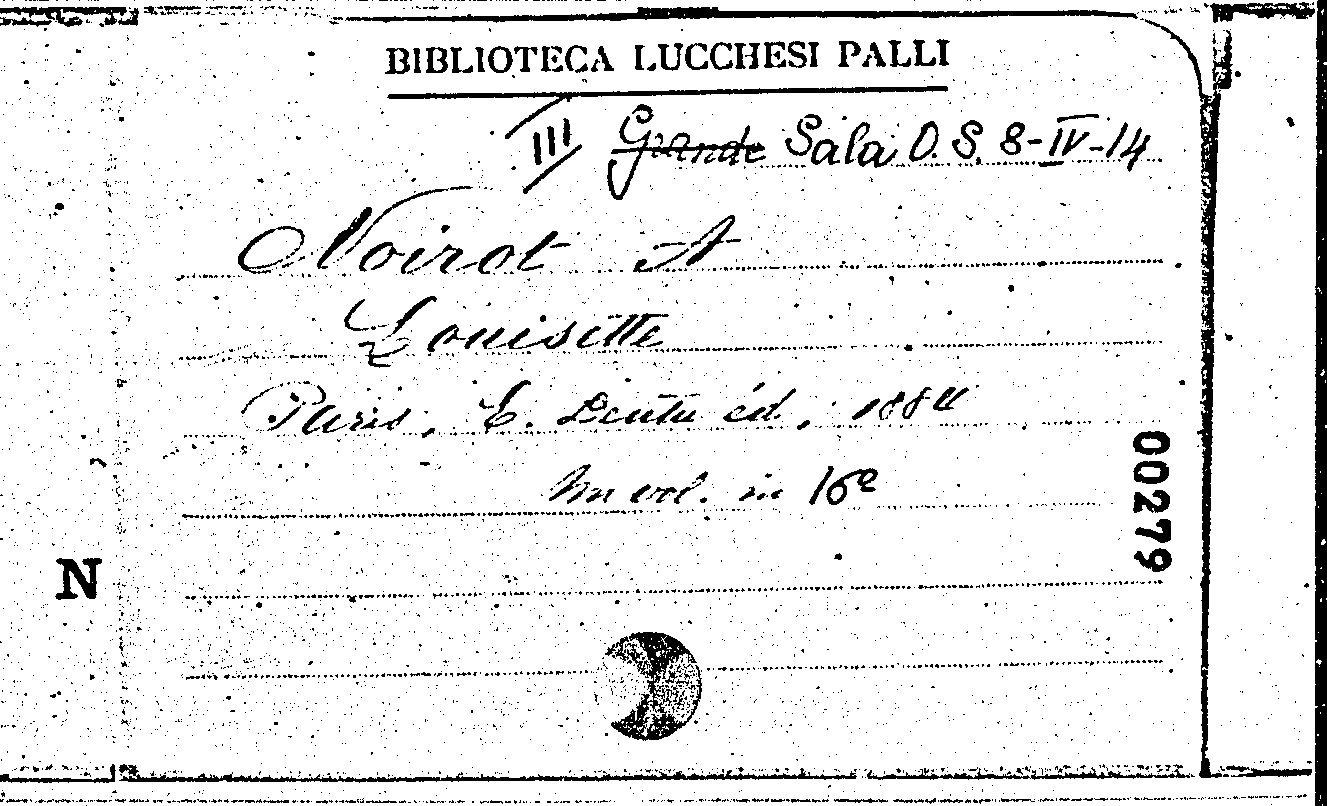 BIBLIOTECA LUCCHESI PALLI
III Grande Sala O.S. 8-IV-14
Noirot A
Louisette
Paris, E. Dentu éd., 1884
Un vol. in 16º
00279
N